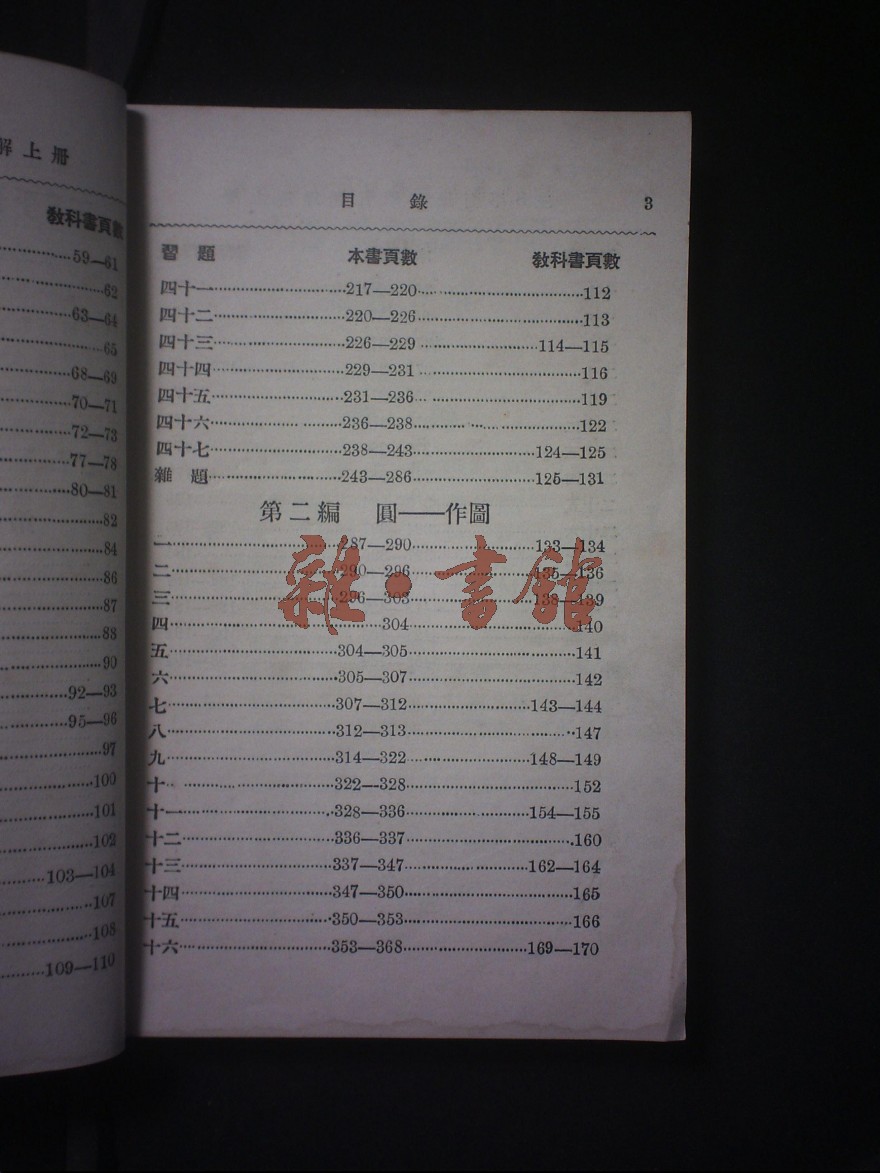 解上冊
教科書頁數
59—61
62
63—64
65
68—69
70—71
72—73
77—78
80—81
82
84
86
87
88
90
92—93
95—96
97
100
101
102
103—104
107
108
109—110
目 錄 3
習 題 本書頁數 教科書頁數
四十一 217—220 112
四十二 220—226 113
四十三 226—229 114—115
四十四 229—231 116
四十五 231—236 119
四十六 236—238 122
四十七 238—243 124—125
雜 題 243—286 125—131
第二編 圓——作圖
一 287—290 133—134
二 290—296 135—136
三 296—303 138—139
四 304 140
五 304—305 141
六 305—307 142
七 307—312 143—144
八 312—313 147
九 314—322 148—149
十 322—328 152
十一 328—336 154—155
十二 336—337 160
十三 337—347 162—164
十四 347—350 165
十五 350—353 166
十六 353—368 169—170
雜·書館